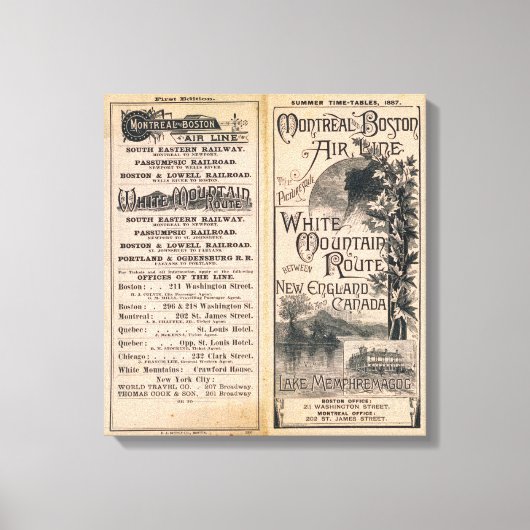 First Edition.
MONTREAL AND BOSTON
AIR LINE
SOUTH EASTERN RAILWAY.
MONTREAL TO NEWPORT.
PASSUMPSIC RAILROAD.
NEWPORT TO WELLS RIVER.
BOSTON & LOWELL RAILROAD.
WELLS RIVER TO BOSTON.
WHITE MOUNTAIN
ROUTE
SOUTH EASTERN RAILWAY.
MONTREAL TO NEWPORT.
PASSUMPSIC RAILROAD.
NEWPORT TO ST. JOHNSBURY.
BOSTON & LOWELL RAILROAD.
ST. JOHNSBURY TO FABYANS.
PORTLAND & OGDENSBURG R. R.
FABYANS TO PORTLAND.
For Tickets and all information, apply at the following
OFFICES OF THE LINE.
Boston: . . 211 Washington Street.
Boston: . 296 & 218 Washington St.
Montreal: . 202 St. James Street.
Quebec: . . . St. Louis Hotel.
Quebec: . . Opp. St. Louis Hotel.
Chicago: . . . 232 Clark Street.
White Mountains: Crawford House.
New York City:
WORLD TRAVEL CO. . 207 Broadway
THOMAS COOK & SON, 261 Broadway
SUMMER TIME-TABLES, 1887.
MONTREAL AND BOSTON
AIR LINE
THE
PICTURESQUE
WHITE
MOUNTAIN
ROUTE
BETWEEN
NEW ENGLAND
AND
CANADA
LAKE MEMPHREMAGOG
BOSTON OFFICE:
211 WASHINGTON STREET.
MONTREAL OFFICE:
202 ST. JAMES STREET.